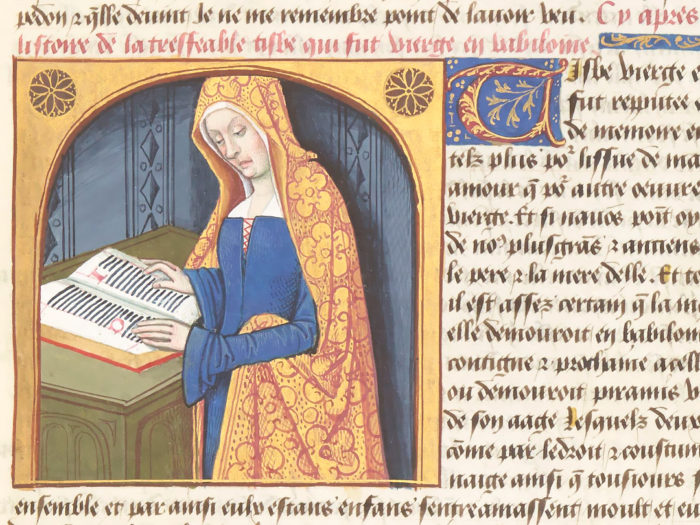 pedon et q̃lle deuint Je ne me remembre point de lauoir veu. Cy apres
listoire de la tresfeable tisbe qui fut vierge en babilome.
Tisbe vierge
fut reputee
de memoire
telz plus poᷣ lissue de
amour q̃ poᷣ autre oeuure
vierge. Et si nauõs point
de noᷤ plusgrans ⁊ anciens
le pere ⁊ la mere delle. Et
il est assez certain q̃ la
elle demouroit en babilon
contigue ⁊ prochaine a
ou demouroit piramus
de son aage lesquelz deux
cõme par le droit ⁊ coustum
naige ainsi q̃ tousiours
ensemble et par ainsi eulx estans enfans sentreamassent moult et